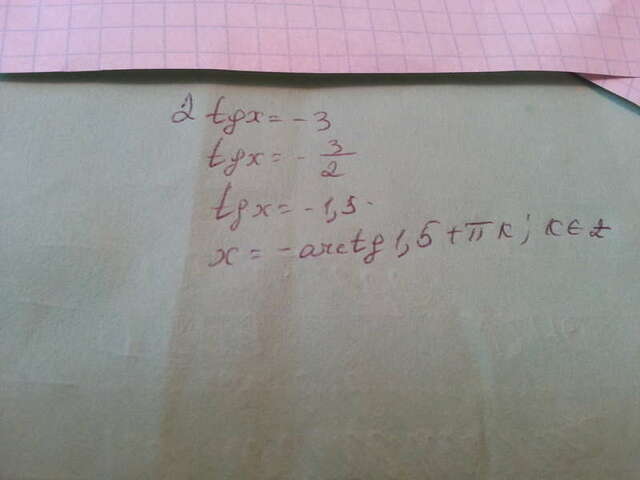 2 tgx = - 3
tgx = - 3/2
tgx = - 1,5
x = - arctg 1,5 + πк; к ∈ z